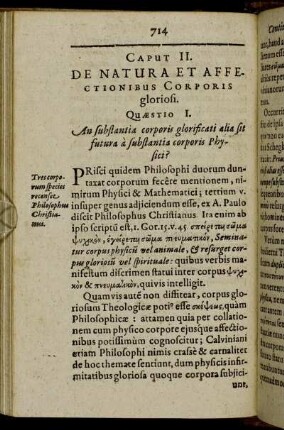 714
CAPUT II.
DE NATURA ET AFFE-
CTIONIBUS CORPORIS
gloriosi.
QUÆSTIO I.
An substantia corporis glorificati alia sit
futura à substantia corporis Phy-
sici?
PRisci quidem Philosophi duorum dun-
taxat corporum fecêre mentionem, ni-
mirum Physici & Mathematici; tertium v.
insuper genus adjiciendum esse, ex A. Paulo
discit Philosophus Christianus. Ita enim ab
ipso scriptũ est, I. Cor. 15. v. 45 σπείρεται σῶμα
ψυχικὸν, ἐγείρεται σῶμα πνευματικὸν, Semina-
tur corpus physicũ vel animale, & resurget cor-
pus gloriosũ vel spirituale: quibus verbis ma-
nifestum discrimen statui inter corpus ψυχι-
κὸν & πνευματικὸν, quivis intelligit.
Quamvis autẽ non diffitear, corpus glo-
riosum Theologicæ poti⁹ esse σκέψεως, quàm
Philosophicæ: attamen quia per collatio-
nem cum physico corpore ejusque affectio-
nibus potissimùm cognoscitur; Calviniani
etiam Philosophi nimis crassè & carnaliter
de hoc themate sentiunt, dum physicis infir-
mitatibus gloriosa quoque corpora subjici-
unt,
Tres corpo-
rum species
recenset
Philosophus
Christia-
nus.